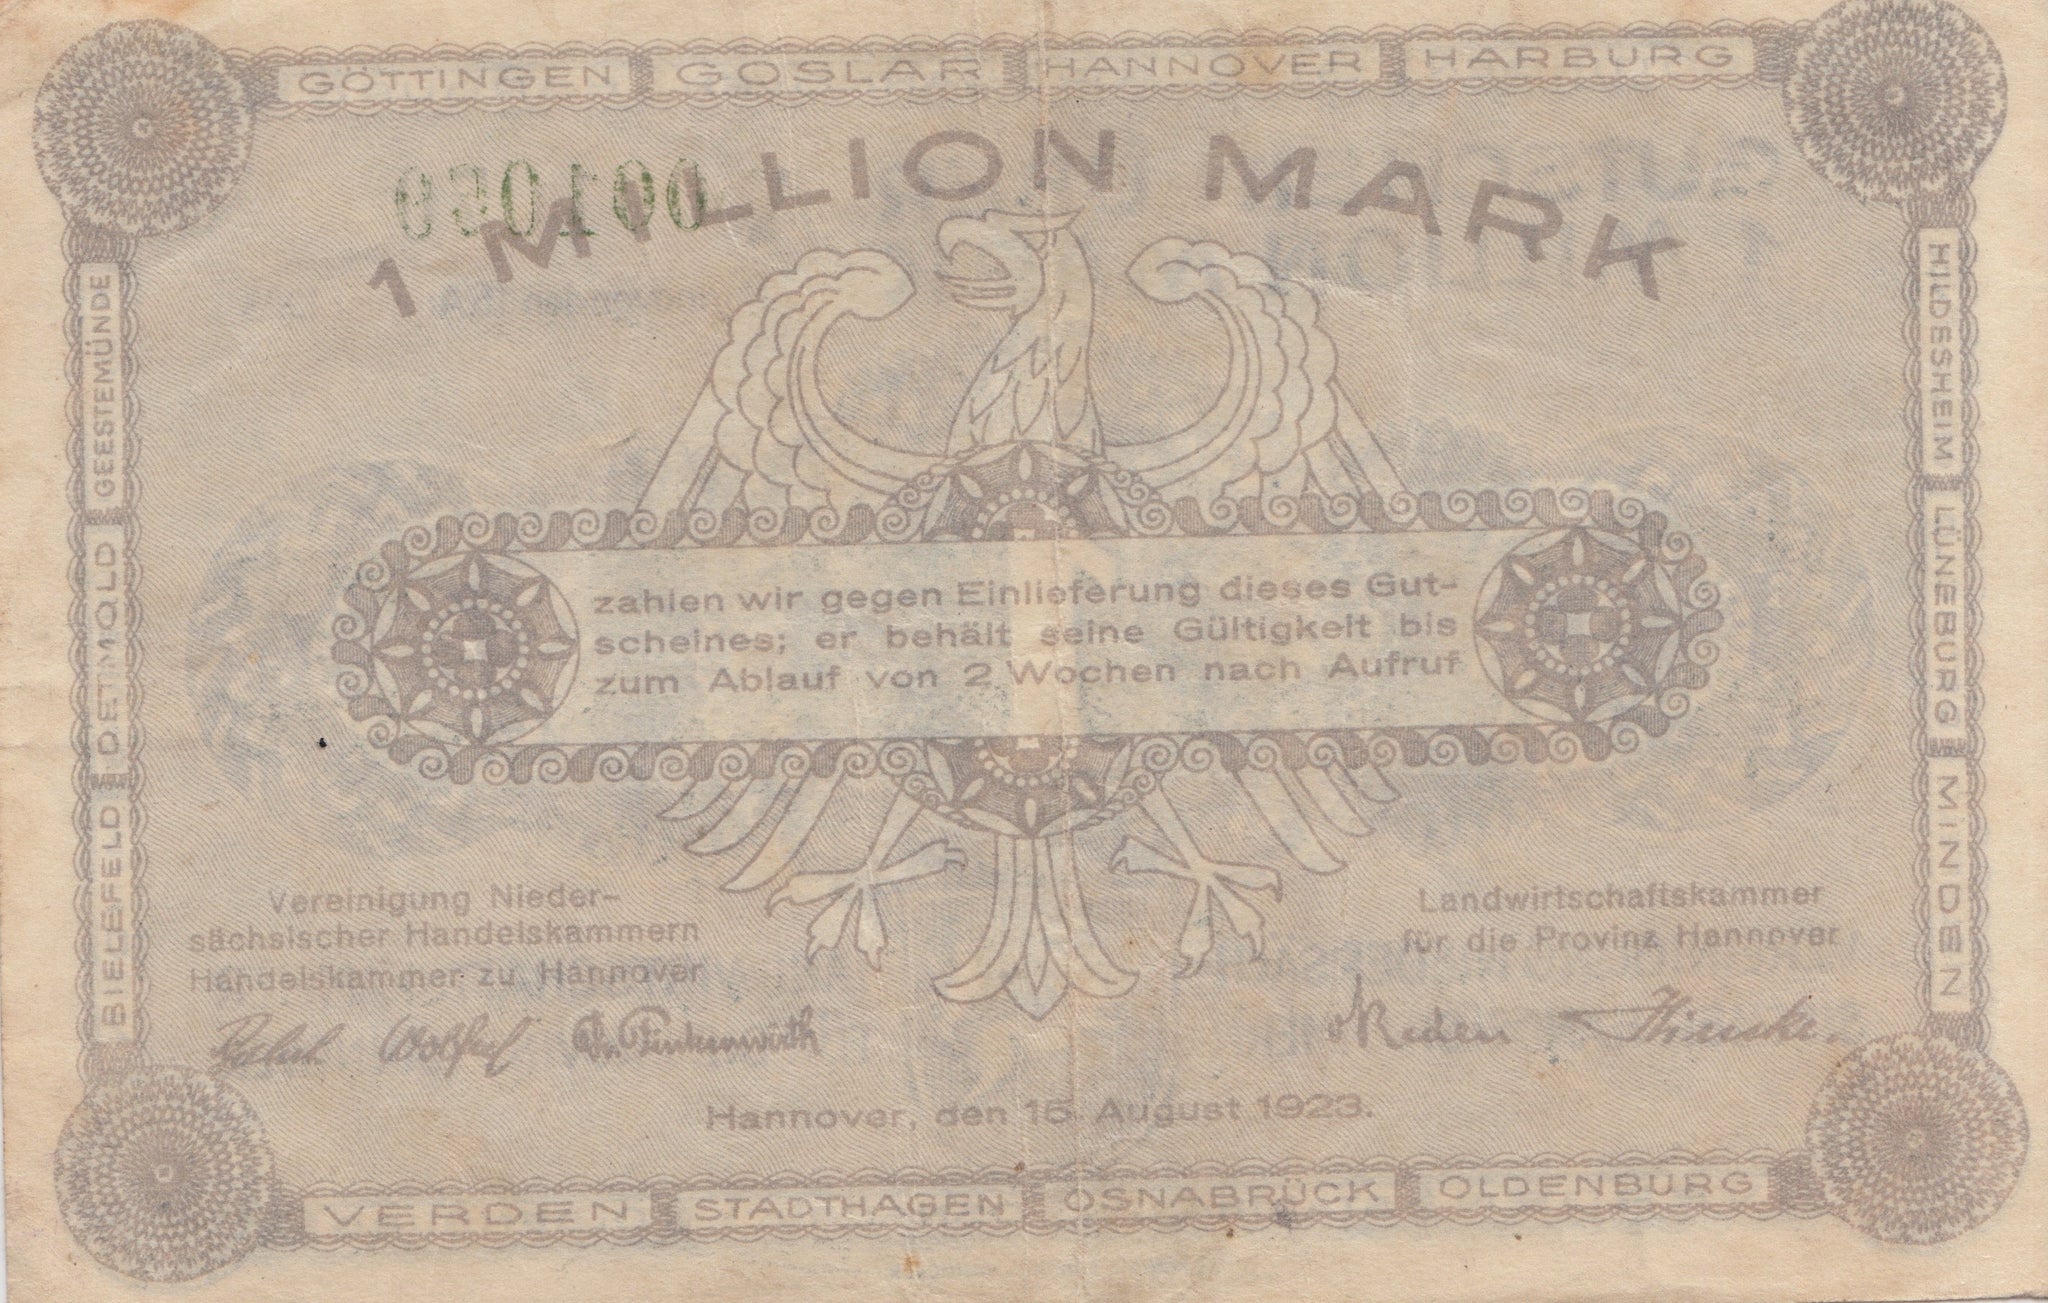 GÖTTINGEN GOSLAR HANNOVER HARBURG
1 MILLION MARK
GEESTEMÜNDE
DETMOLD
BIELEFELD
HILDESHEIM
LÜNEBURG
MINDEN
zahlen wir gegen Einlieferung dieses Gut-
scheines; er behält seine Gültigkeit bis
zum Ablauf von 2 Wochen nach Aufruf
Vereinigung Nieder-
sächsischer Handelskammern
Handelskammer zu Hannover
Landwirtschaftskammer
für die Provinz Hannover
Dr. Finkenwirth
Hannover, den 15. August 1923.
VERDEN STADTHAGEN OSNABRÜCK OLDENBURG